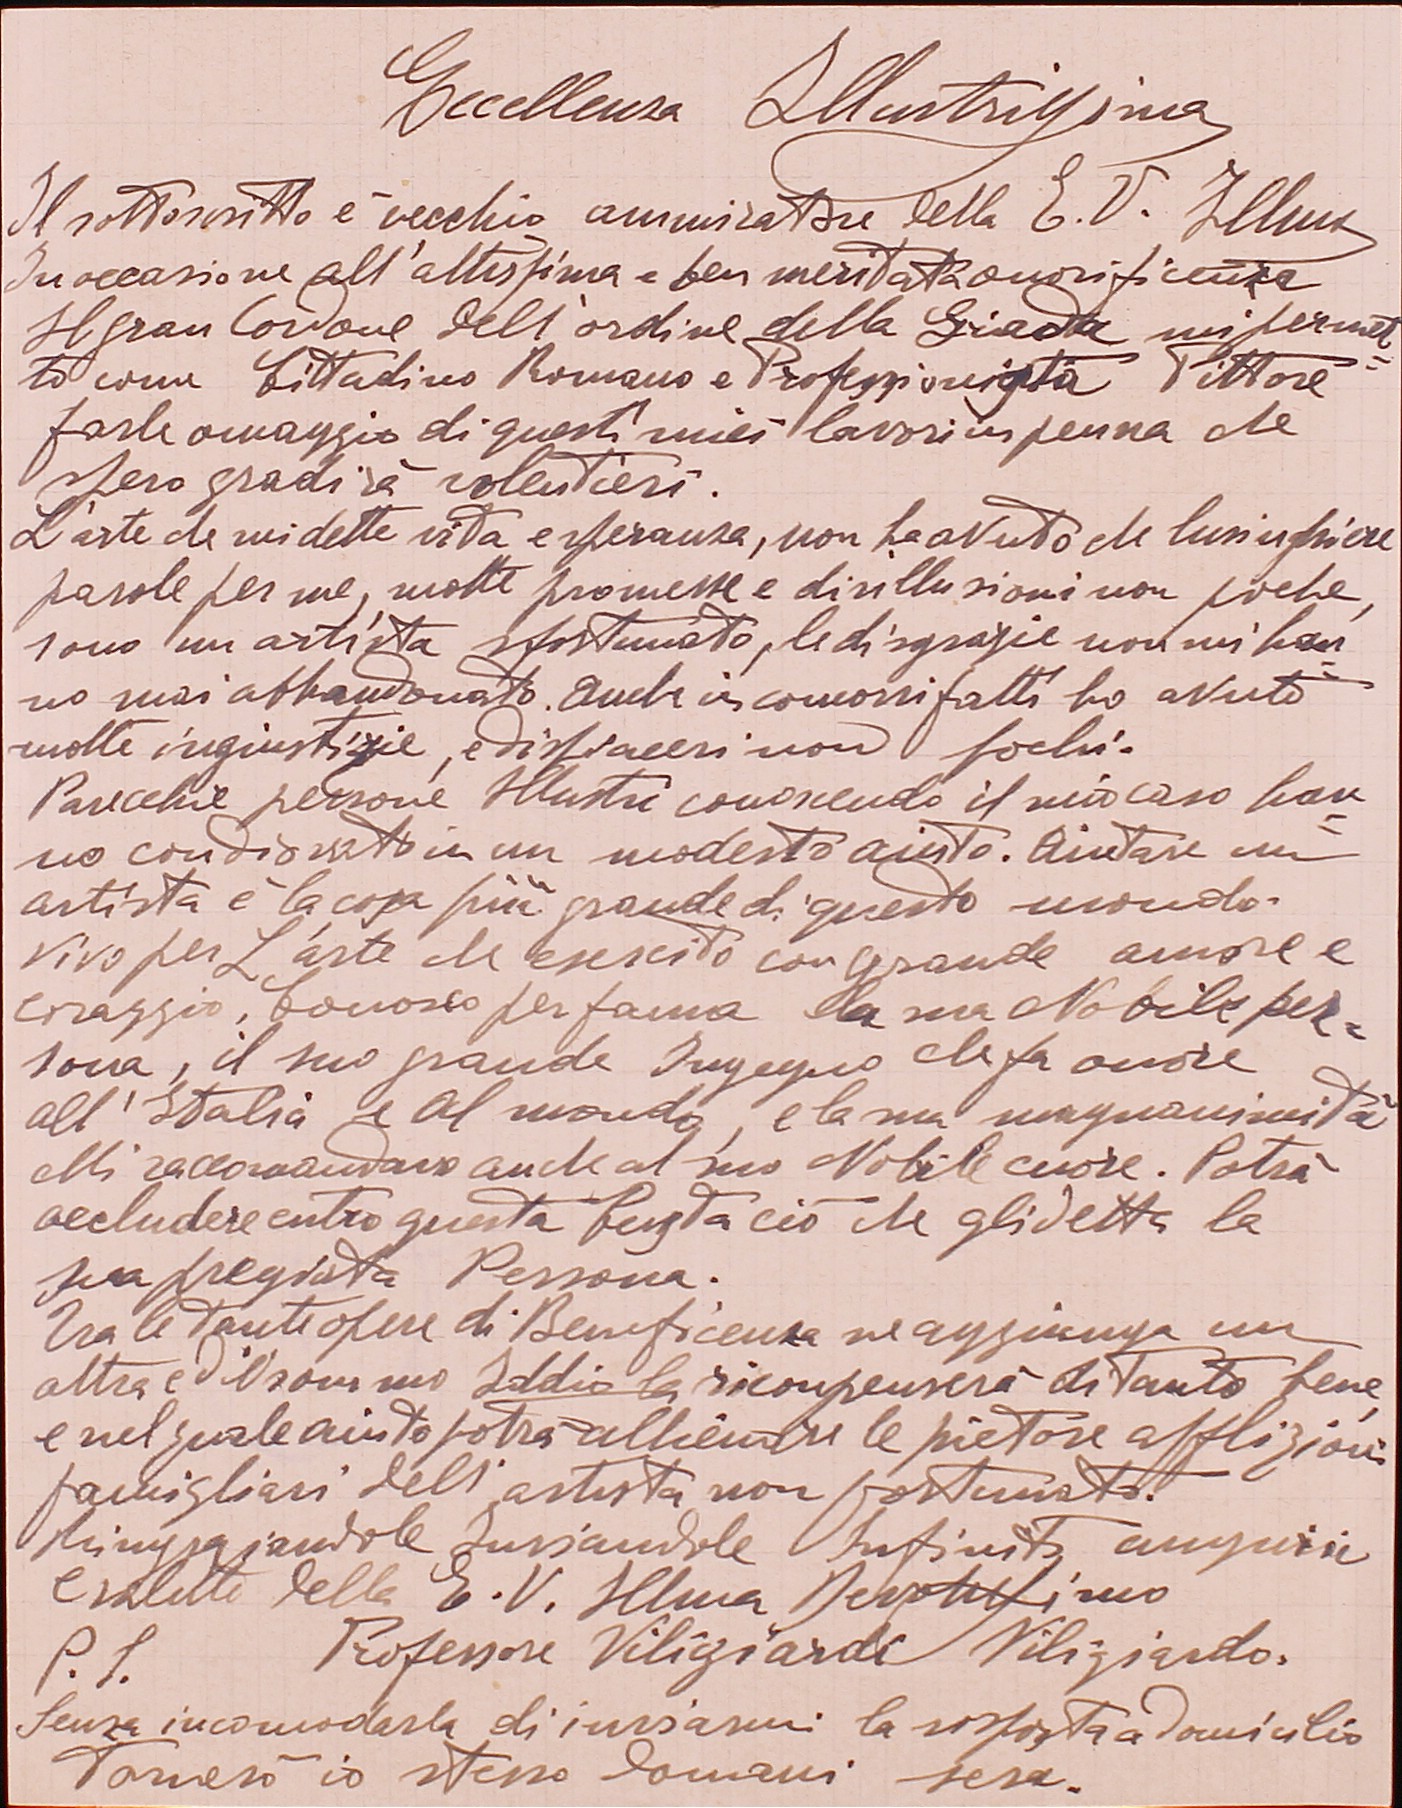 Eccellenza Illustrissima
Il sottoscritto è vecchio ammiratore della E. V. Illma
In occasione all'altissima e ben meritata onorificenza
Il gran Cordone dell'ordine della Giada mi permet=
to come Cittadino Romano e Professionista Pittore
farle omaggio di questi miei lavori in penna che
spero gradirà volentieri.
L'arte che mi dette vita e speranza, non ha avuto che lusinghiere
parole per me, molte promesse e disillusioni non poche,
sono un artista sfortunato, le disgrazie non mi han=
no mai abbandonato. Anche in concorsi fatti ho avuto
molte ingiustizie, e dispiaceri non pochi.
Parecchie persone Illustri conoscendo il mio caso han=
no condiovato in un modesto aiuto. Aiutare un
artista è la cosa più grande di questo mondo.
Vivo per L'arte che esercito con grande amore e
coraggio, Conosco per fama la sua Nobile per=
sona, il suo grande Ingegno che fa onore
all'Italia e al mondo, e la sua magnanimità
Mi raccomandavo anche al suo Nobile cuore. Potrà
accludere entro questa busta ciò che gli detta la
sua pregiata Persona.
Tra le tante opere di Beneficenza ne aggiunga un
altra ed il sommo Iddio la ricompenserà di tanto bene,
e nel quale aiuto potrà alleviare le pietose afflizioni
famigliari dell'artista non fortunato.
Ringraziandole Inviandole Infiniti auguri
e salute della E. V. Illma Devotissimo
Professore Viligiardi Viligiardo.
P. S.
Senza incomodarla di inviarmi la risposta a domicilio
Tornerò io stesso domani sera.